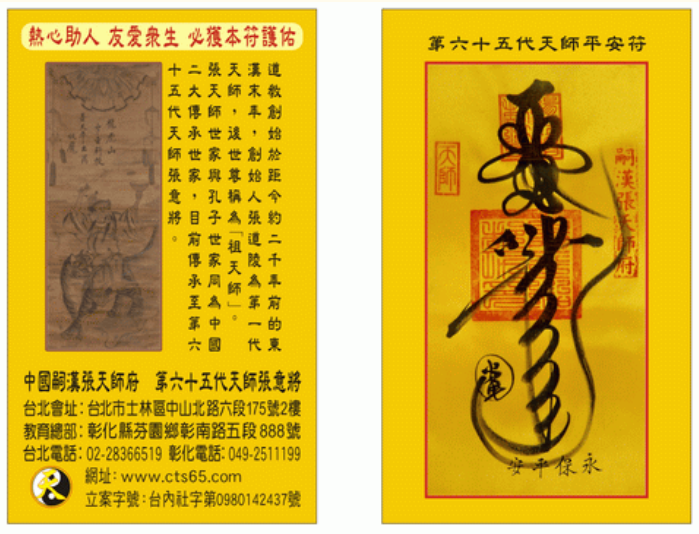 熱心助人 友愛眾生 必獲本符護佑
道教創始於距今約二千年前的東
漢末年，創始人張道陵為第一代
天師，後世尊稱為「祖天師」。
張天師世家與孔子世家同為中國
二大傳承世家，目前傳承至第六
十五代天師張意將。
中國嗣漢張天師府 第六十五代天師張意將
台北會址：台北市士林區中山北路六段175號2樓
教育總部：彰化縣芬園鄉彰南路五段888號
台北電話：02-28366519 彰化電話：049-2511199
網址：www.cts65.com
立案字號：台內社字第0980142437號
第六十五代天師平安符
天師
嗣漢張天師府
永保平安